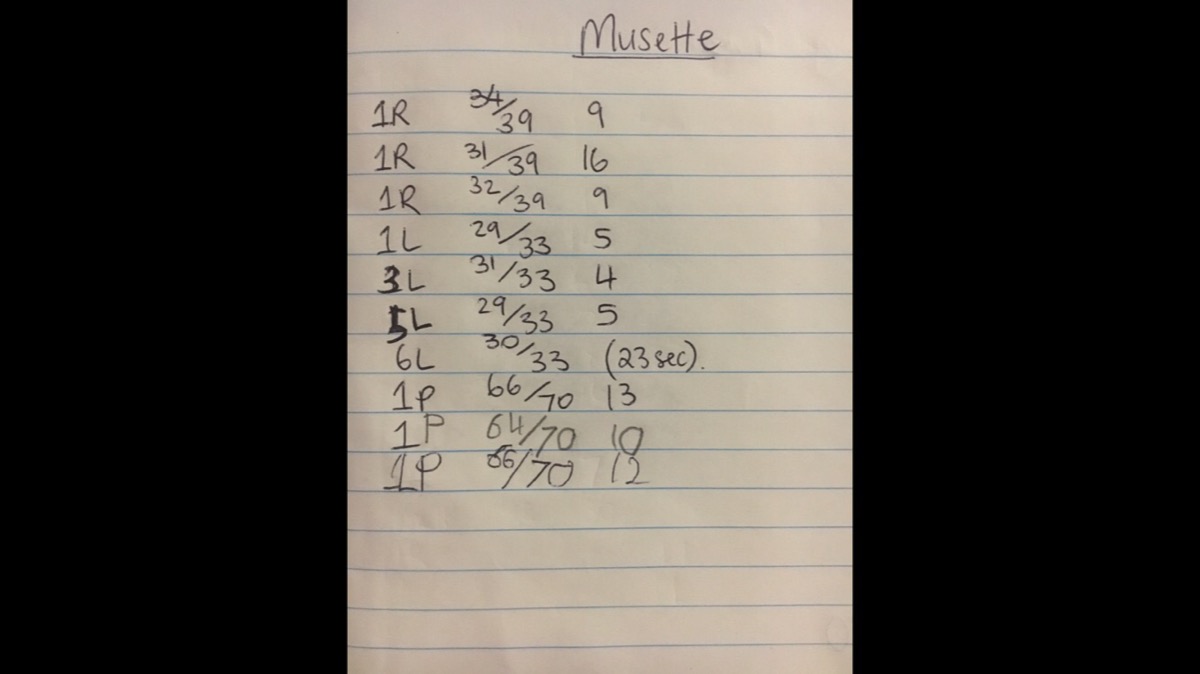 Musette
1R 34/39 9
1R 31/39 16
1R 32/39 9
1L 29/33 5
3L 31/33 4
5L 29/33 5
6L 30/33 (23sec).
1P 66/70 13
1P 64/70 10
1P 66/70 12